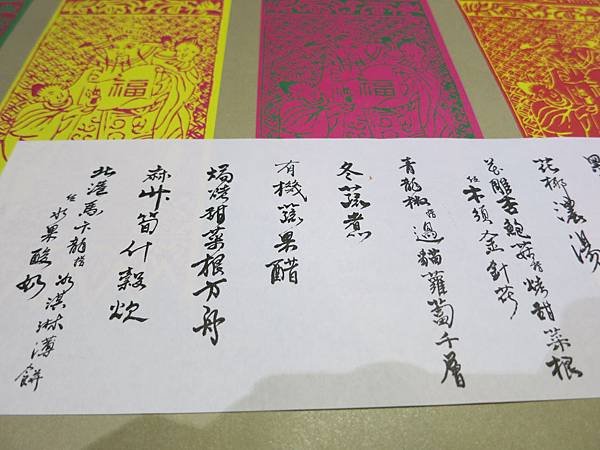 黑
花椰濃湯
花雕杏鮑菇搭烤甜菜根
佐木須金針花
青龍椒搭過貓蘿蔔千層
冬蔬煮
有機蔬果醋
焗烤甜菜根方舟
麻竹筍什穀炊
北海馬卡龍搭冰淇淋薄餅
佐水果酸奶
福
福
福